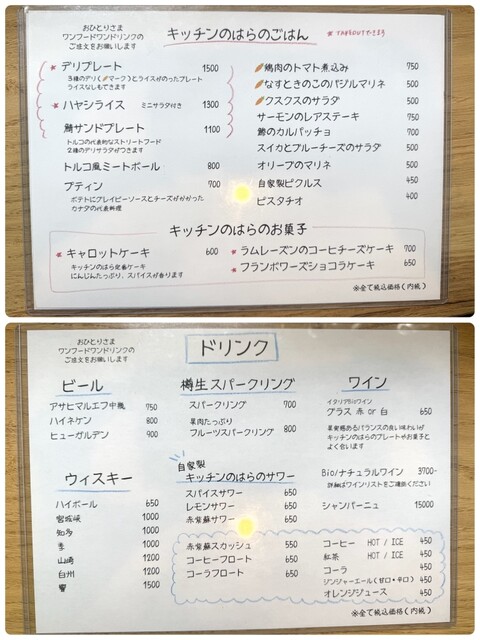 おひとりさま
ワンフードワンドリンクの
ご注文をお願いします
キッチンのはらのごはん
* TAKEOUTできます
* デリプレート 1500
3種のデリ(マーク)とライスがのったプレート
ライスなしもできます
* ハヤシライス ミニサラダ付き 1300
鯖サンドプレート 1100
トルコの代表的なストリートフード
2種のデリサラダがつきます
トルコ風ミートボール 800
プティン 700
ポテトにグレイビーソースとチーズがかかった
カナダの代表料理
鶏肉のトマト煮込み 750
なすときのこのバジルマリネ 500
クスクスのサラダ 500
サーモンのレアステーキ 750
鯵のカルパッチョ 700
スイカとブルーチーズのサラダ 500
オリーブのマリネ 500
自家製ピクルス 450
ピスタチオ 400
キッチンのはらのお菓子
* キャロットケーキ 600
キッチンのはら定番ケーキ
にんじんたっぷり、スパイスが香ります
* ラムレーズンのコーヒーチーズケーキ 700
* フランボワーズショコラケーキ 650
※全て税込価格(内税)
おひとりさま
ワンフードワンドリンクの
ご注文をお願いします
ドリンク
ビール
アサヒマルエフ中瓶 750
ハイネケン 800
ヒューガルデン 900
ウィスキー
ハイボール 650
宮城峡 1000
知多 1000
季 1000
山崎 1200
白州 1200
響 1500
樽生スパークリング
スパークリング 700
果肉たっぷり
フルーツスパークリング 800
自家製
キッチンのはらのサワー
スパイスサワー 650
レモンサワー 650
赤紫蘇サワー 650
赤紫蘇スカッシュ 550
コーヒーフロート 650
コーラフロート 650
ワイン
イタリアBioワイン
グラス 赤 or 白 650
果実感あるバランスの良い味わいが
キッチンのはらのプレートやお菓子と
よく合います
Bio/ナチュラルワイン 3900-
詳細はワインリストをご確認ください
シャンパーニュ 15000
コーヒー HOT / ICE 450
紅茶 HOT / ICE 450
コーラ 450
ジンジャーエール(甘口・辛口) 450
オレンジジュース 450
※全て税込価格(内税)